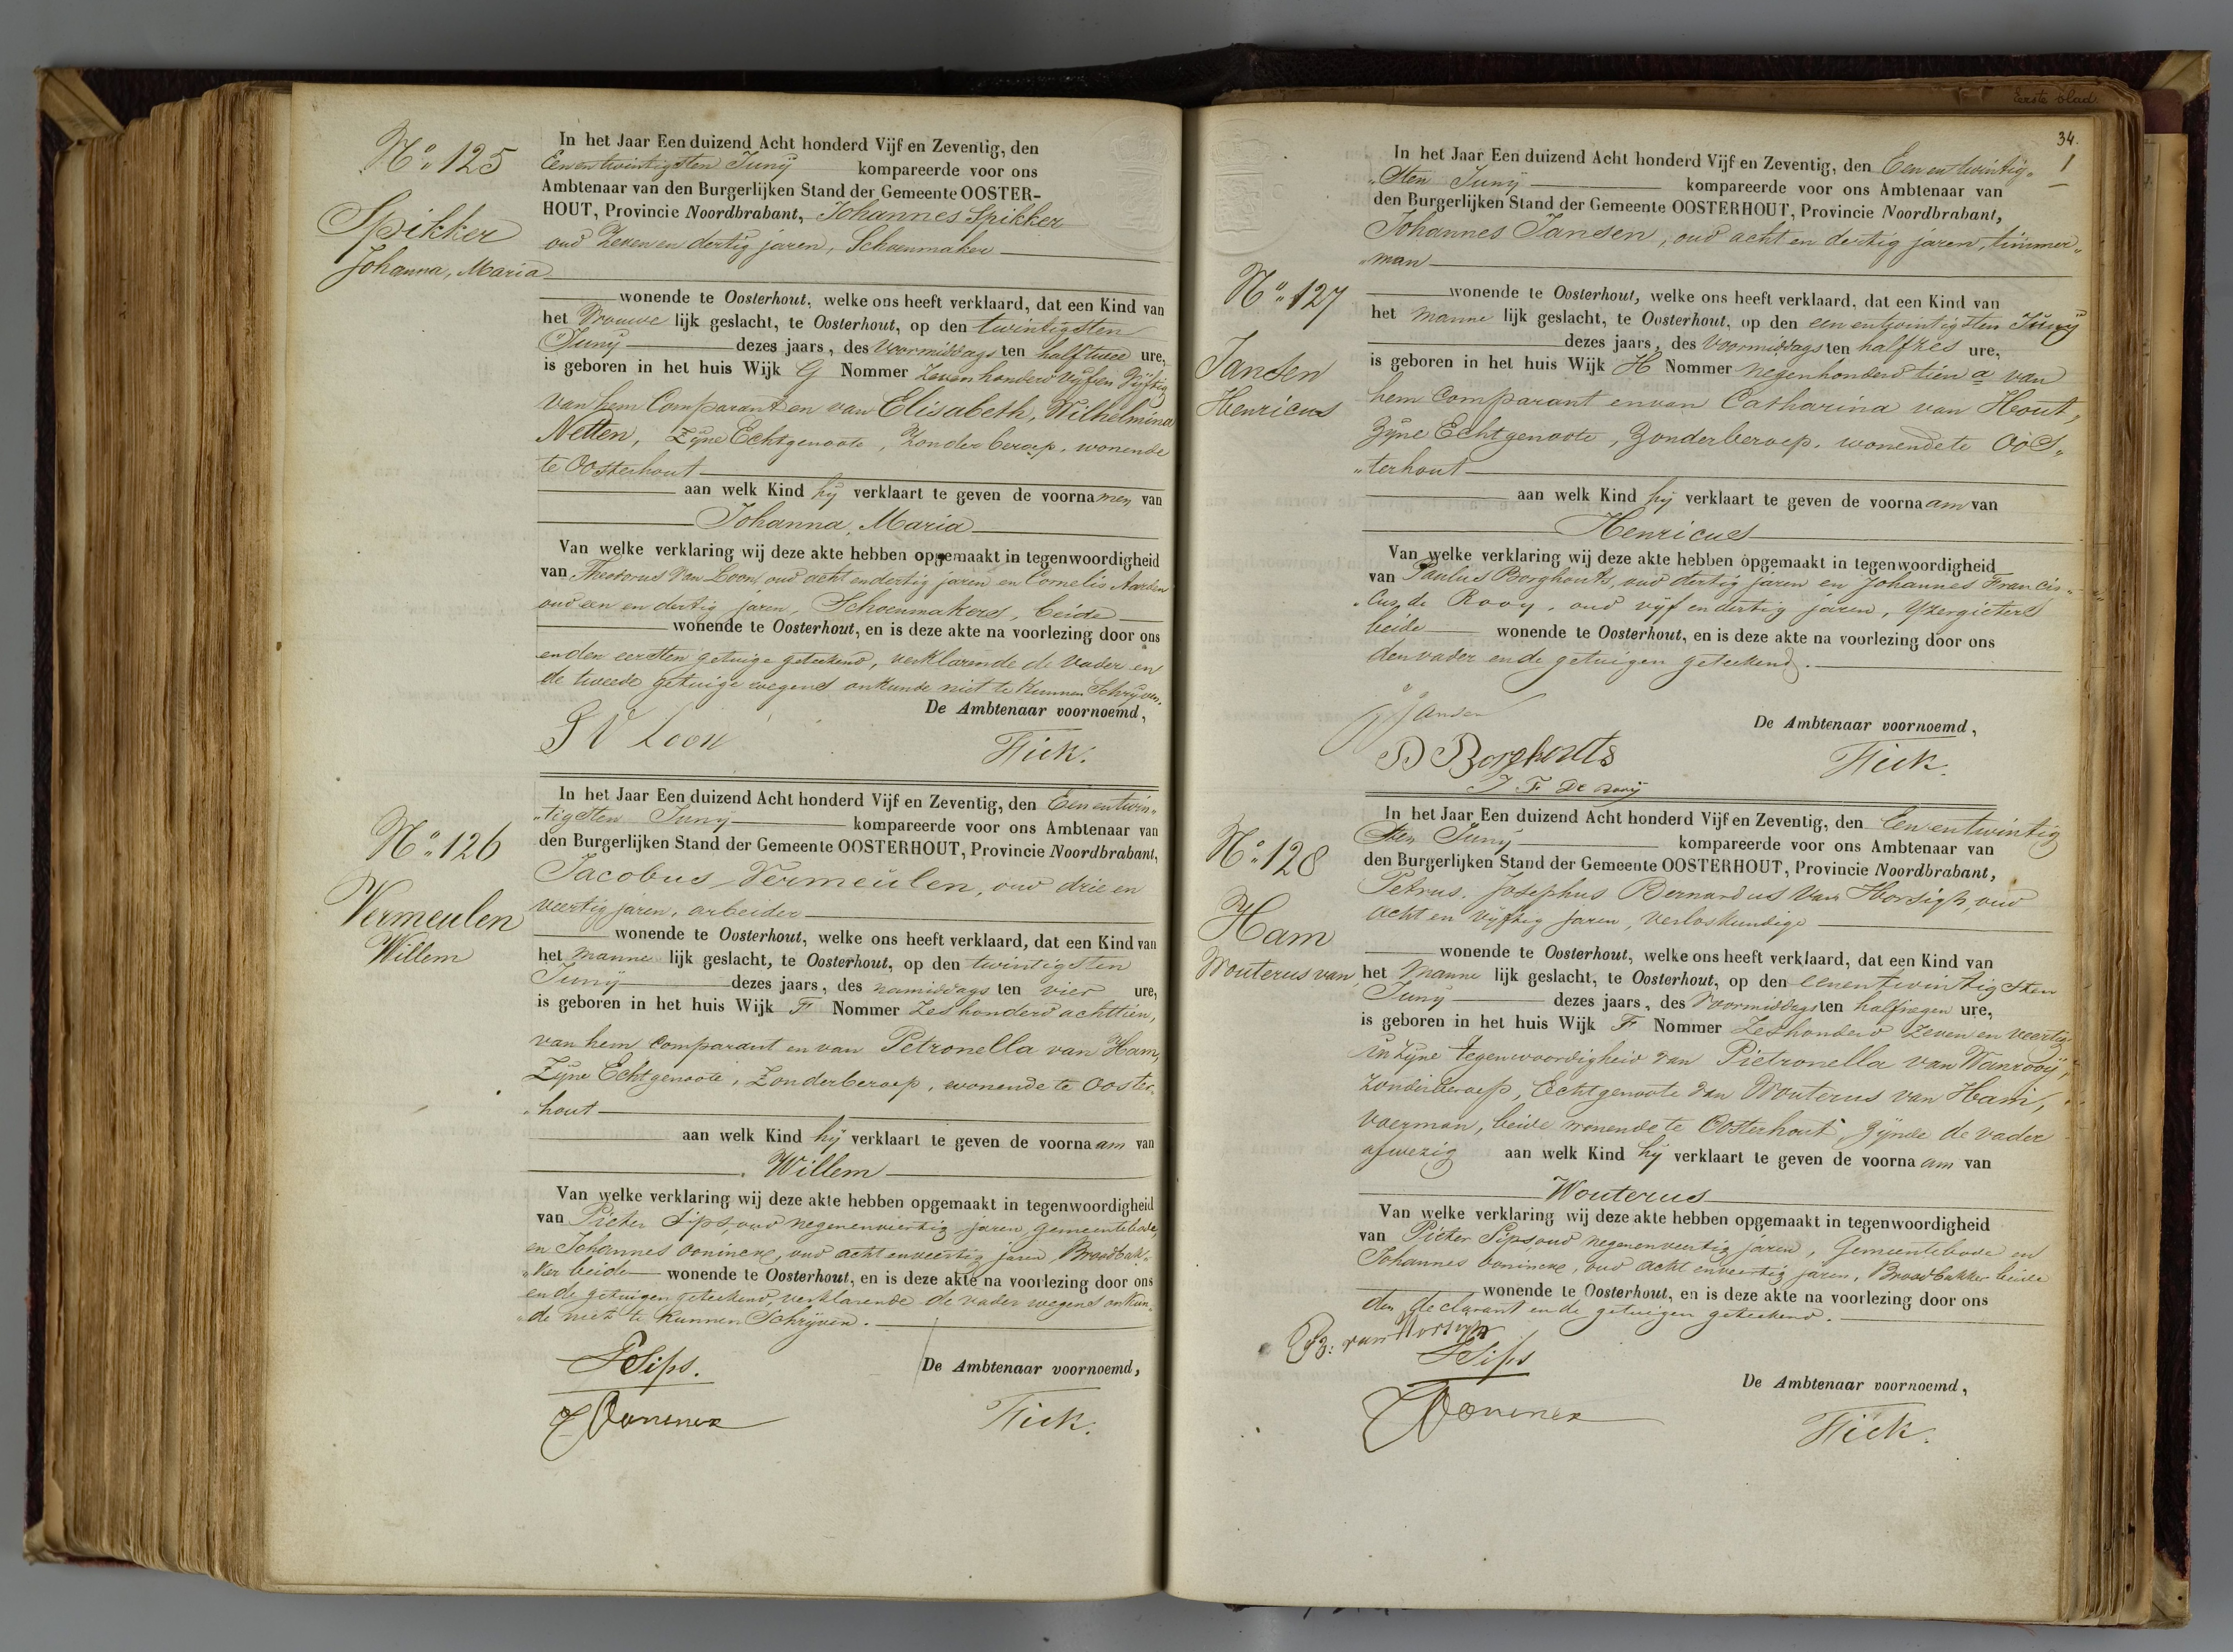 No. 125
Spikker
Johanna, Maria
In het Jaar Een duizend Acht honderd Vijf en Zeventig, den
Eenentwintigsten Junij kompareerde voor ons
Ambtenaar van den Burgerlijken Stand der Gemeente OOSTER-
HOUT, Provincie Noordbrabant, Johannes Spikker
oud Zeven en dertig jaren, Schoenmaker
wonende te Oosterhout, welke ons heeft verklaard, dat een Kind van
het Vrouwe lijk geslacht, te Oosterhout, op den twintigsten
Junij dezes jaars, des Voormiddags ten half twee ure,
is geboren in het huis Wijk G Nommer Zevenhonderd Vijf en Vijftig
van hem Comparant en van Elisabeth, Wilhelmina
Netten, Zijne Echtgenoote, Zonder beroep, wonende
te Oosterhout
aan welk Kind hij verklaart te geven de voornamen van
Johanna, Maria
Van welke verklaring wij deze akte hebben opgemaakt in tegenwoordigheid
van Theodorus van Loon, oud acht en dertig jaren en Cornelis Aarden
oud een en dertig jaren, Schoenmakers, beide
wonende te Oosterhout, en is deze akte na voorlezing door ons
en den eersten getuige geteekend, verklarende de Vader en
de tweede getuige wegens onkunde niet te kunnen Schrijven.
De Ambtenaar voornoemd,
V Loon
Fick.
No. 126
Vermeulen
Willem
In het Jaar Een duizend Acht honderd Vijf en Zeventig, den Een entwin„
„tigsten Junij kompareerde voor ons Ambtenaar van
den Burgerlijken Stand der Gemeente OOSTERHOUT, Provincie Noordbrabant,
Jacobus Vermeulen, oud drie en
veertig jaren, arbeider
wonende te Oosterhout, welke ons heeft verklaard, dat een Kind van
het manne lijk geslacht, te Oosterhout, op den twintigsten
Junij dezes jaars, des namiddags ten vier ure,
is geboren in het huis Wijk F Nommer Zeshonderd achttien,
van hem Comparant en van Petronella van Ham,
Zijne Echtgenoote, Zonder beroep, wonende te Ooster„
„hout
aan welk Kind hij verklaart te geven de voornaam van
Willem
Van welke verklaring wij deze akte hebben opgemaakt in tegenwoordigheid
van Pieter Sips, oud negenenveertig jaren, gemeentebode,
en Johannes Oonincx, oud acht enveertig jaren, Broodbak„
„ker beide wonende te Oosterhout, en is deze akte na voorlezing door ons
en de getuigen geteekend, verklarende de vader wegens onkun„
„de niet te kunnen Schrijven.
De Ambtenaar voornoemd,
P Sips.
J Oonincx
Fick.
Eerste blad.
34.
1
No. 127
Jansen
Henricus
In het Jaar Een duizend Acht honderd Vijf en Zeventig, den Een en twintig„
„sten Junij kompareerde voor ons Ambtenaar van
den Burgerlijken Stand der Gemeente OOSTERHOUT, Provincie Noordbrabant,
Johannes Jansen, oud acht en dertig jaren, timmer„
„man
wonende te Oosterhout, welke ons heeft verklaard, dat een Kind van
het manne lijk geslacht, te Oosterhout, op den een entwintigsten Junij
dezes jaars, des Voormiddags ten half zes ure,
is geboren in het huis Wijk H Nommer negenhonderd tien a van
hem Comparant en van Catharina van Hout,
Zijne Echtgenoote, Zonder beroep, wonende te Oos„
„terhout
aan welk Kind hij verklaart te geven de voornaam van
Henricus
Van welke verklaring wij deze akte hebben opgemaakt in tegenwoordigheid
van Paulus Borghouts, oud dertig jaren en Johannes Francis„
„cus de Rooy, oud vijf en dertig jaren, Yzergieters
beide wonende te Oosterhout, en is deze akte na voorlezing door ons
den vader en de getuigen geteekend.
De Ambtenaar voornoemd,
J Jansen
P Borghouts
J F De Rooij
Fick.
No. 128
Ham
Wouterus van,
In het Jaar Een duizend Acht honderd Vijf en Zeventig, den Een entwintig
sten Junij kompareerde voor ons Ambtenaar van
den Burgerlijken Stand der Gemeente OOSTERHOUT, Provincie Noordbrabant,
Petrus, Josephus Bernardus van Horsigh, oud
acht en vijftig jaren, Verloskundige
wonende te Oosterhout, welke ons heeft verklaard, dat een Kind van
het Manne lijk geslacht, te Oosterhout, op den eenentwintigsten
Junij dezes jaars, des Voormiddags ten half negen ure,
is geboren in het huis Wijk F Nommer Zeshonderd Zeven en veertig
in Zijne tegenwoordigheid van Pietronella van Wanrooij,
Zonder beroep, Echtgenoote van Wouterus van Ham,
voerman, beide wonende te Oosterhout, Zijnde de vader
afwezig aan welk Kind hij verklaart te geven de voornaam van
Wouterus
Van welke verklaring wij deze akte hebben opgemaakt in tegenwoordigheid
van Pieter Sips, oud negenenveertig jaren, Gemeentebode en
Johannes Oonincx, oud acht enveertig jaren, Broodbakker beide
wonende te Oosterhout, en is deze akte na voorlezing door ons
den declarant en de getuigen geteekend.
van Horsigh
P Sips
De Ambtenaar voornoemd,
J Oonincx
Fick.